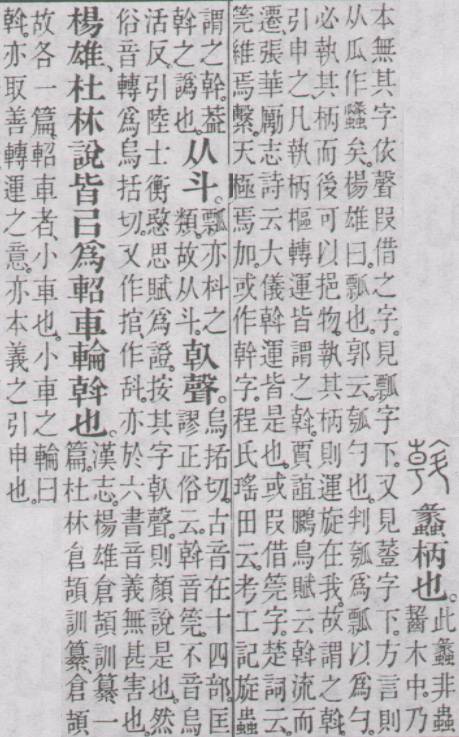 斡 蠡柄也。此蠡非蟲
齧木中。乃
本無其字依聲叚借之字。見瓢字下。又見𧯷字下。方言則
从瓜作蠡矣。楊雄曰。瓢也。郭云。瓠勺也。判瓠爲瓢以爲勺。
必執其柄而後可以挹物。執其柄則運旋在我。故謂之斡。
引申之凡執柄樞轉運皆謂之斡。賈誼鵩鳥賦云。斡流而
遷。張華勵志詩云。大儀斡運。皆是也。或叚借筦字。楚詞云。
筦維焉繫。天極焉加。或作幹字。程氏瑤田云。考工記旋蟲
謂之幹。葢
斡之譌也。
从斗。
瓢亦枓之
類。故从斗。
倝聲。
烏括切。古音在十四部。匡
謬正俗云。斡音筦。不音烏
活反。引陸士衡愍思賦爲證。按其字倝聲。則顏說是也。然
俗音轉爲烏括切。又作捾、作㪲。亦於六書音義無甚害也。
楊雄、杜林說皆㠯爲軺車輪斡也。
漢志。楊雄倉頡訓纂一
篇。杜林倉頡訓纂、倉頡
故各一篇。軺車者、小車也。小車之輪曰
斡。亦取善轉運之意。亦本義之引申也。